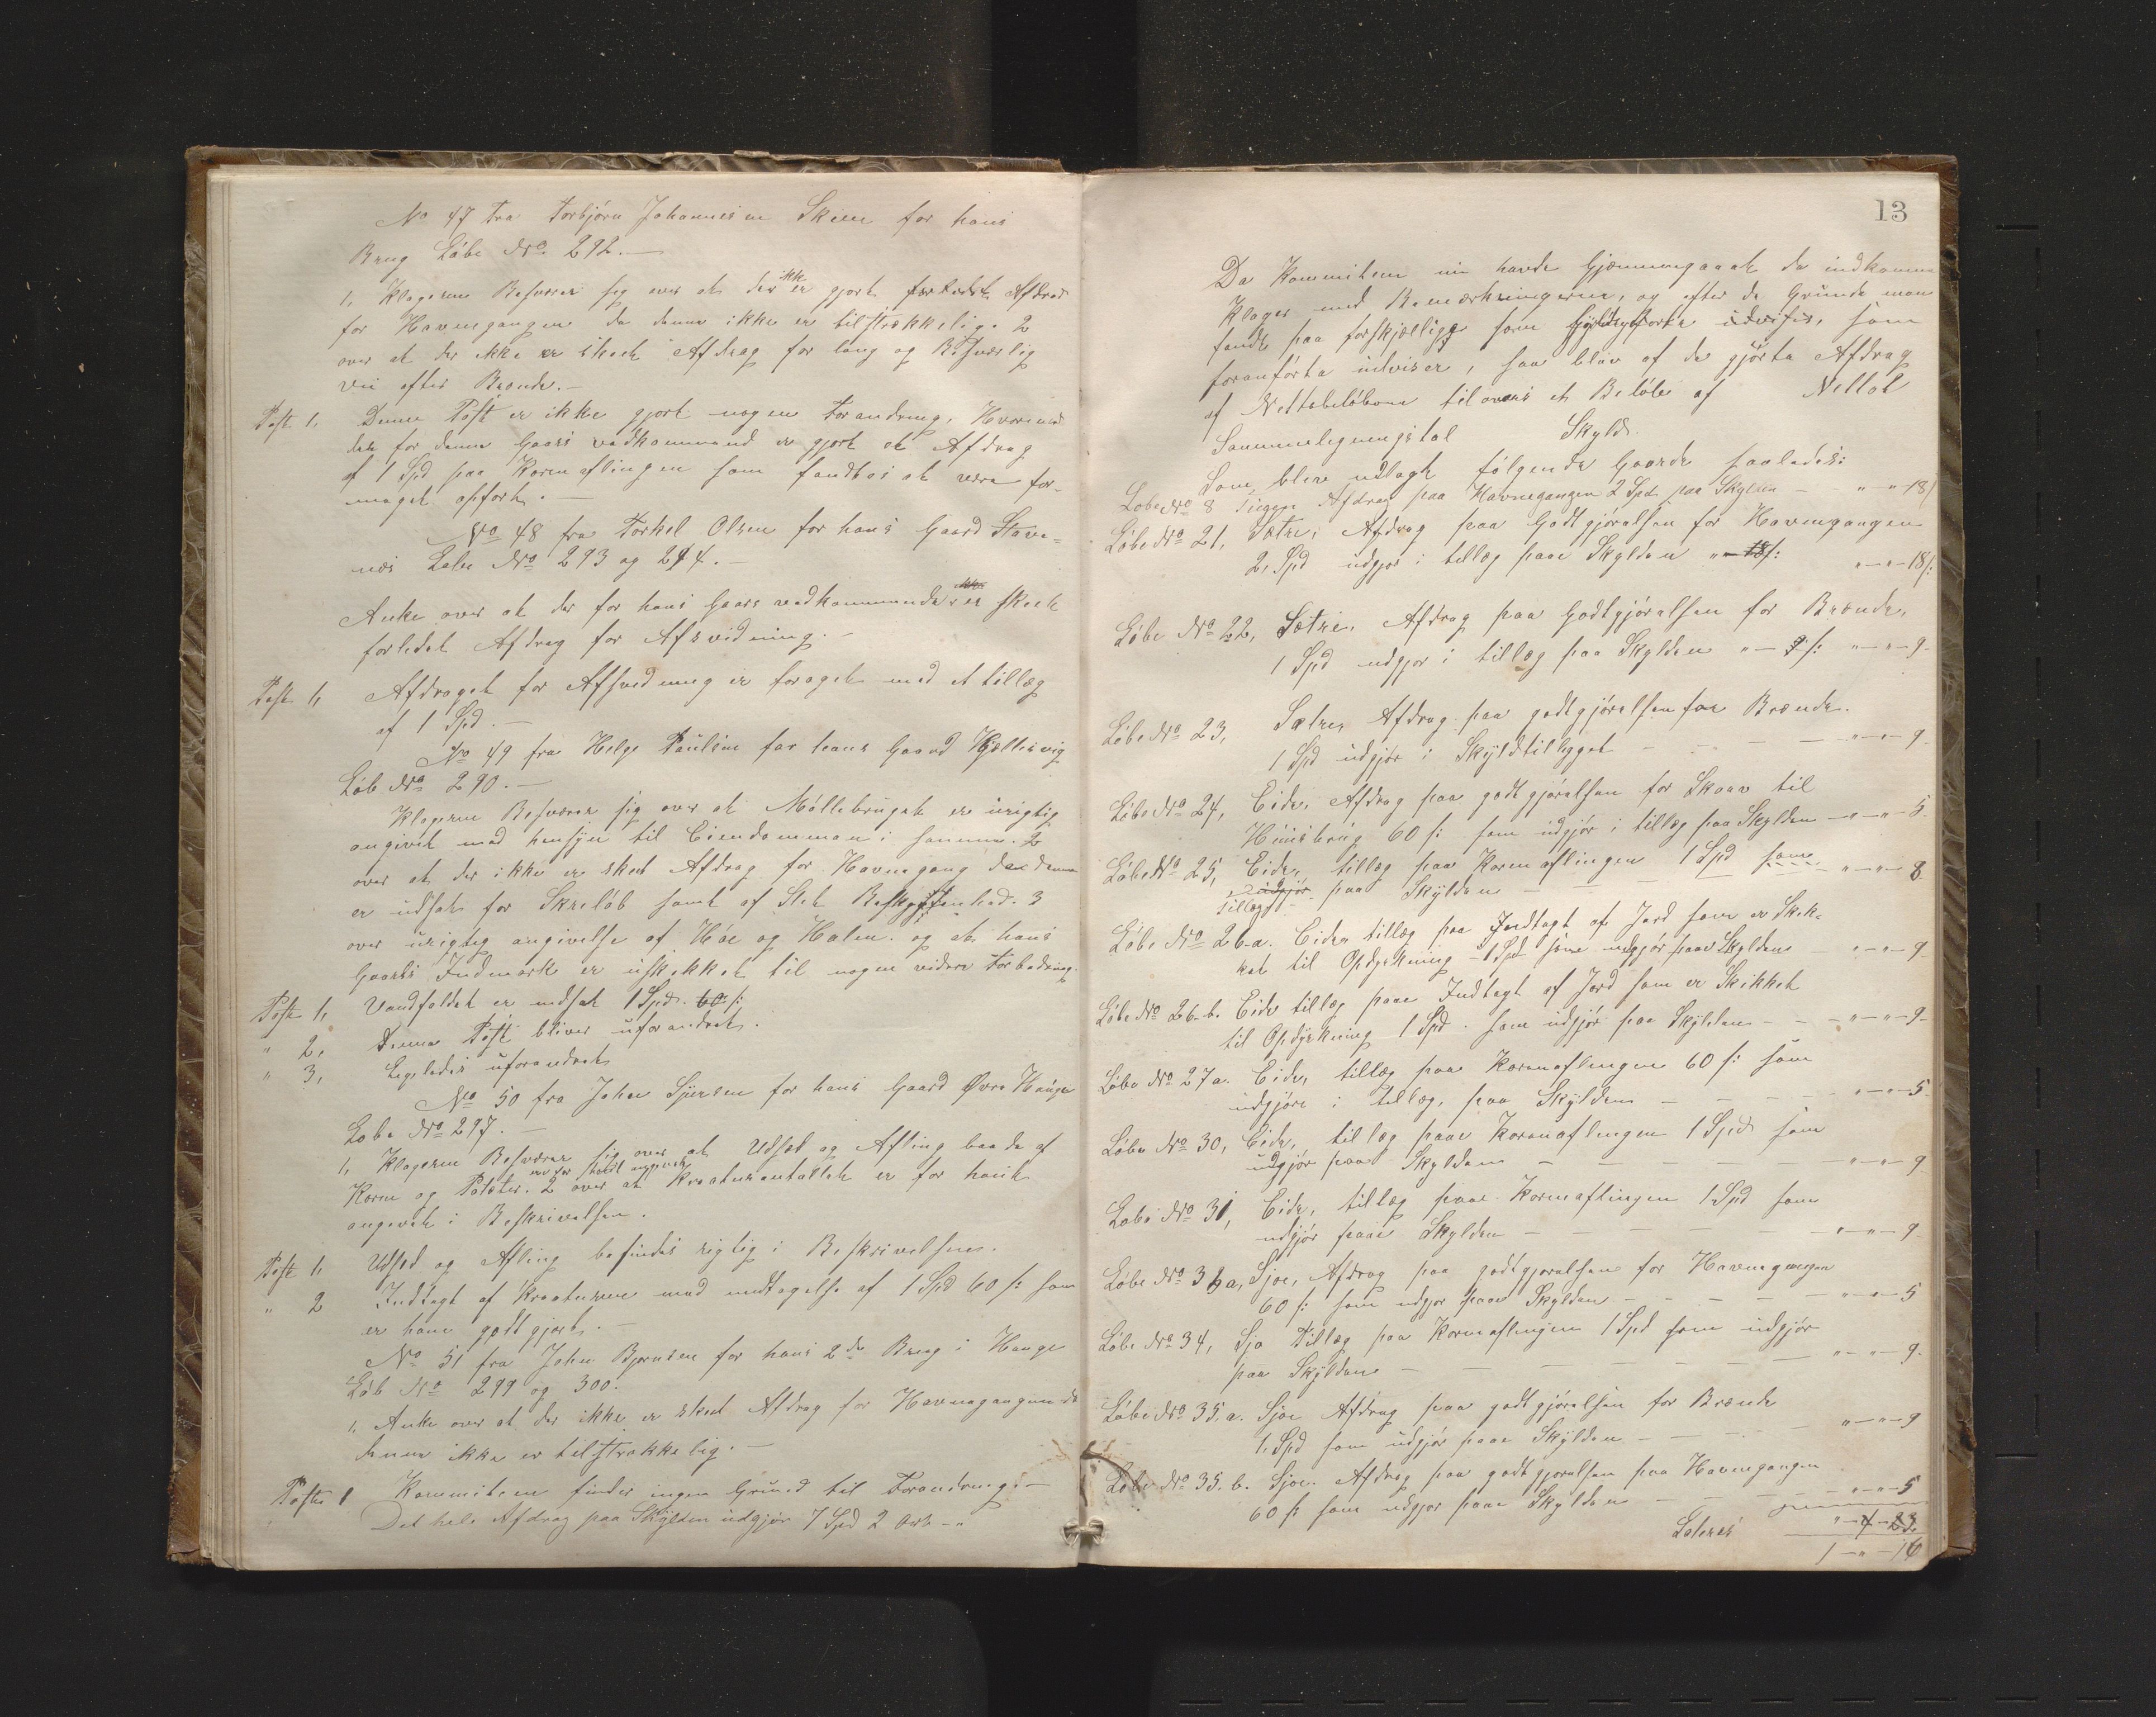 No 47 fra Torbjörn Johannesen Skeie for hans
Brug Löbe No. 292.—
1, Klageren Besværer sig over at der ikke er gjort forledet Afdrag
for Havnegangen da denne ikke er tilstrækkelig. 2
over at der ikke er skeet Afdrag for lang og Besværlig
Vei efter Brænde.—
Post 1, Denne Post er ikke gjort nogen Forandring. Hvorimod
der for denne Gaards vedkommend er gjort et Afdrag
af 1 Spd paa Kornaflingen som fandtes at være for-
meget opfört.—
No 48 fra Torkel Olsen for hans Gaard Stave-
næs Løbe No 293 og 294.—
Anke over at der for hans Gaars vedkommende er skeet
forledet Afdrag for Afsvidning.—
Post 1, Afdraget for Afsvedning er foröget med et tillæg
af 1 Spd.—
No 49 fra Helge Paulsen for hans Gaard Hjellesvig
Löb No 290.—
Klageren Besværer sig over at Möllebruget er urigtig
angivet med hensyn til Eiendommen i samme. 2
over at der ikke er skeet Afdrag for Havnegang da denne
er udsat for Skreløb samt af Slet Beskaffenhed. 3
over urigtig angivelse af Höe og Halm. og at hans
Gaards Indmark er uskikket til nogen videre Forbedring.
Post 1, Vandfaldet er nedsat 1 Spd. 60 s:
" 2, Denne Post bliver uforandret.
" 3, Ligeledes uforandret
No 50 fra Johan Sjursen for hans Gaard Övre Hauge
Lobe No 297.—
1, Klageren Besværer sig over at Udsæd og Afling baade af
Korn og Poteter er for höit angivet. 2 over at Kreaturantallet er for höit
angivet i Beskrivelsen.
Post 1, Udsæd og Afling befindes rigtig i Beskrivelsen.
" 2 Indtægt af Kreaturene med nedtagelse af 1 Spd 60 s: som
er ham godtgjort.—
No 51 fra John Bjørnsen for hans 2de Brug i Hauge
Löb No 299 og 300.
1, Anke over at der ikke er skeet Afdrag for Havnegangen da
denne ikke er tilstrækkelig.—
Poster 1 Kommiteen finder ingen Grund til Forandring.—
Det hele Afdrag paa Skylden udgjör 7 Spd 2 Ort—"
13
Da Kommiteen nu havde Gjennemgaaet de indkomne
Klager med Bemærkningerne, og efter de Grunde man
fandt paa forskjellige som fyldestgjörte udviser, som
foranförte udviser, saa blev af de gjörte Afdrag
af Nettobelöbene tilovers et Belöb af Nettol
Sammenlegningstal Skyld
Som blev udlagt fölgende Gaarde saaledes:
Lobe No 8 Afdrag paa Havnegangen 2 Spd paa Skylden — "—"—18 s
Löbe No 21, Sætre, Afdrag paa Godtgjörelsen for Havnegangen
2, Spd udgjor i tillæg paa Skylden "—18 s: "—"—18 s:
Löbe No 22, Sætre. Afdrag paa Godtgjörelsen for Brænde,
1 Spd udgjor i tillæg paa Skylden "—9 s: "—"—9
Löbe No 23, Sætre, Afdrag paa godtgjörelsen for Brænde.
1 Spd udgjör i Skyldtillegget — "—"—9
Löbe No 24, Eide, Afdrag paa godtgjörelsen for Skaav til
Huusbrug 60 s: som udgjör i tillæg paa Skylden —"—"—5
Löbe No 25, Eide, tillæg paa Kornaflingen 1 Spd som
udgjör paa Skylden — "—"—8
Tillægs
Löbe No 26.a. Eide, tillæg paa Indtagt af Jord som er Skik-
ket til Opdyrkning — 1 Spd som udgjör paa Skylden "—"—9
Löbe No 26.b. Eide tillæg paa Indtagt af Jord som er Skikket
til Opdyrkning 1 Spd. som udgjör paa Skylden — "—"—9
Löbe No 27a. Eide, tillæg paa Kornaflingen 60 s: som
udgjöre i tillæg, paa Skylden — "—"—5
Löbe No 30, Eide, tillæg paa Kornaflingen 1 Spd som
udgjör paa Skylden — "—"—9
Löbe No 31, Eide, tillæg paa Kornaflingen 1 Spd som
udgjör paa Skylden — "—"—9
Löbe No 32a, Sjoe, Afdrag paa godtgjorelsen for Havnegangen
60 s: som udgjor paa Skylden — "—"—5
Löbe No 34, Sjo Tillæg paa Kornaflingen 1 Spd som udgjör
paa Skylden — "—"—9.
Löbe No 35.a. Sjoe Afdrag paa godtgjörelsen for Brænde
1, Spd som udgjör paa Skylden — "—"—9
Löbe No 35.b. Sjoe. Afdrag paa godtgjorelsen paa Havnegangen
60 s som udgjor paa Skylden — "—"—5
"—4—23.
Lateres 1—"—16